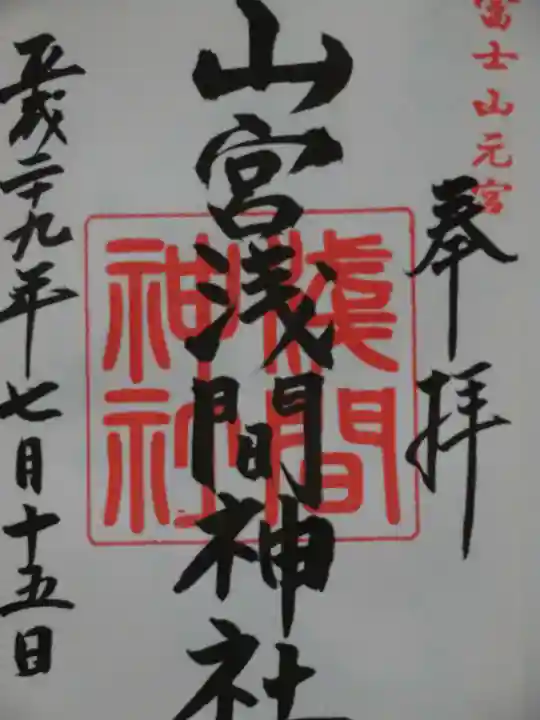 富士山元宮
奉拝
山宮浅間神社
浅間神社
平成二十九年七月十五日